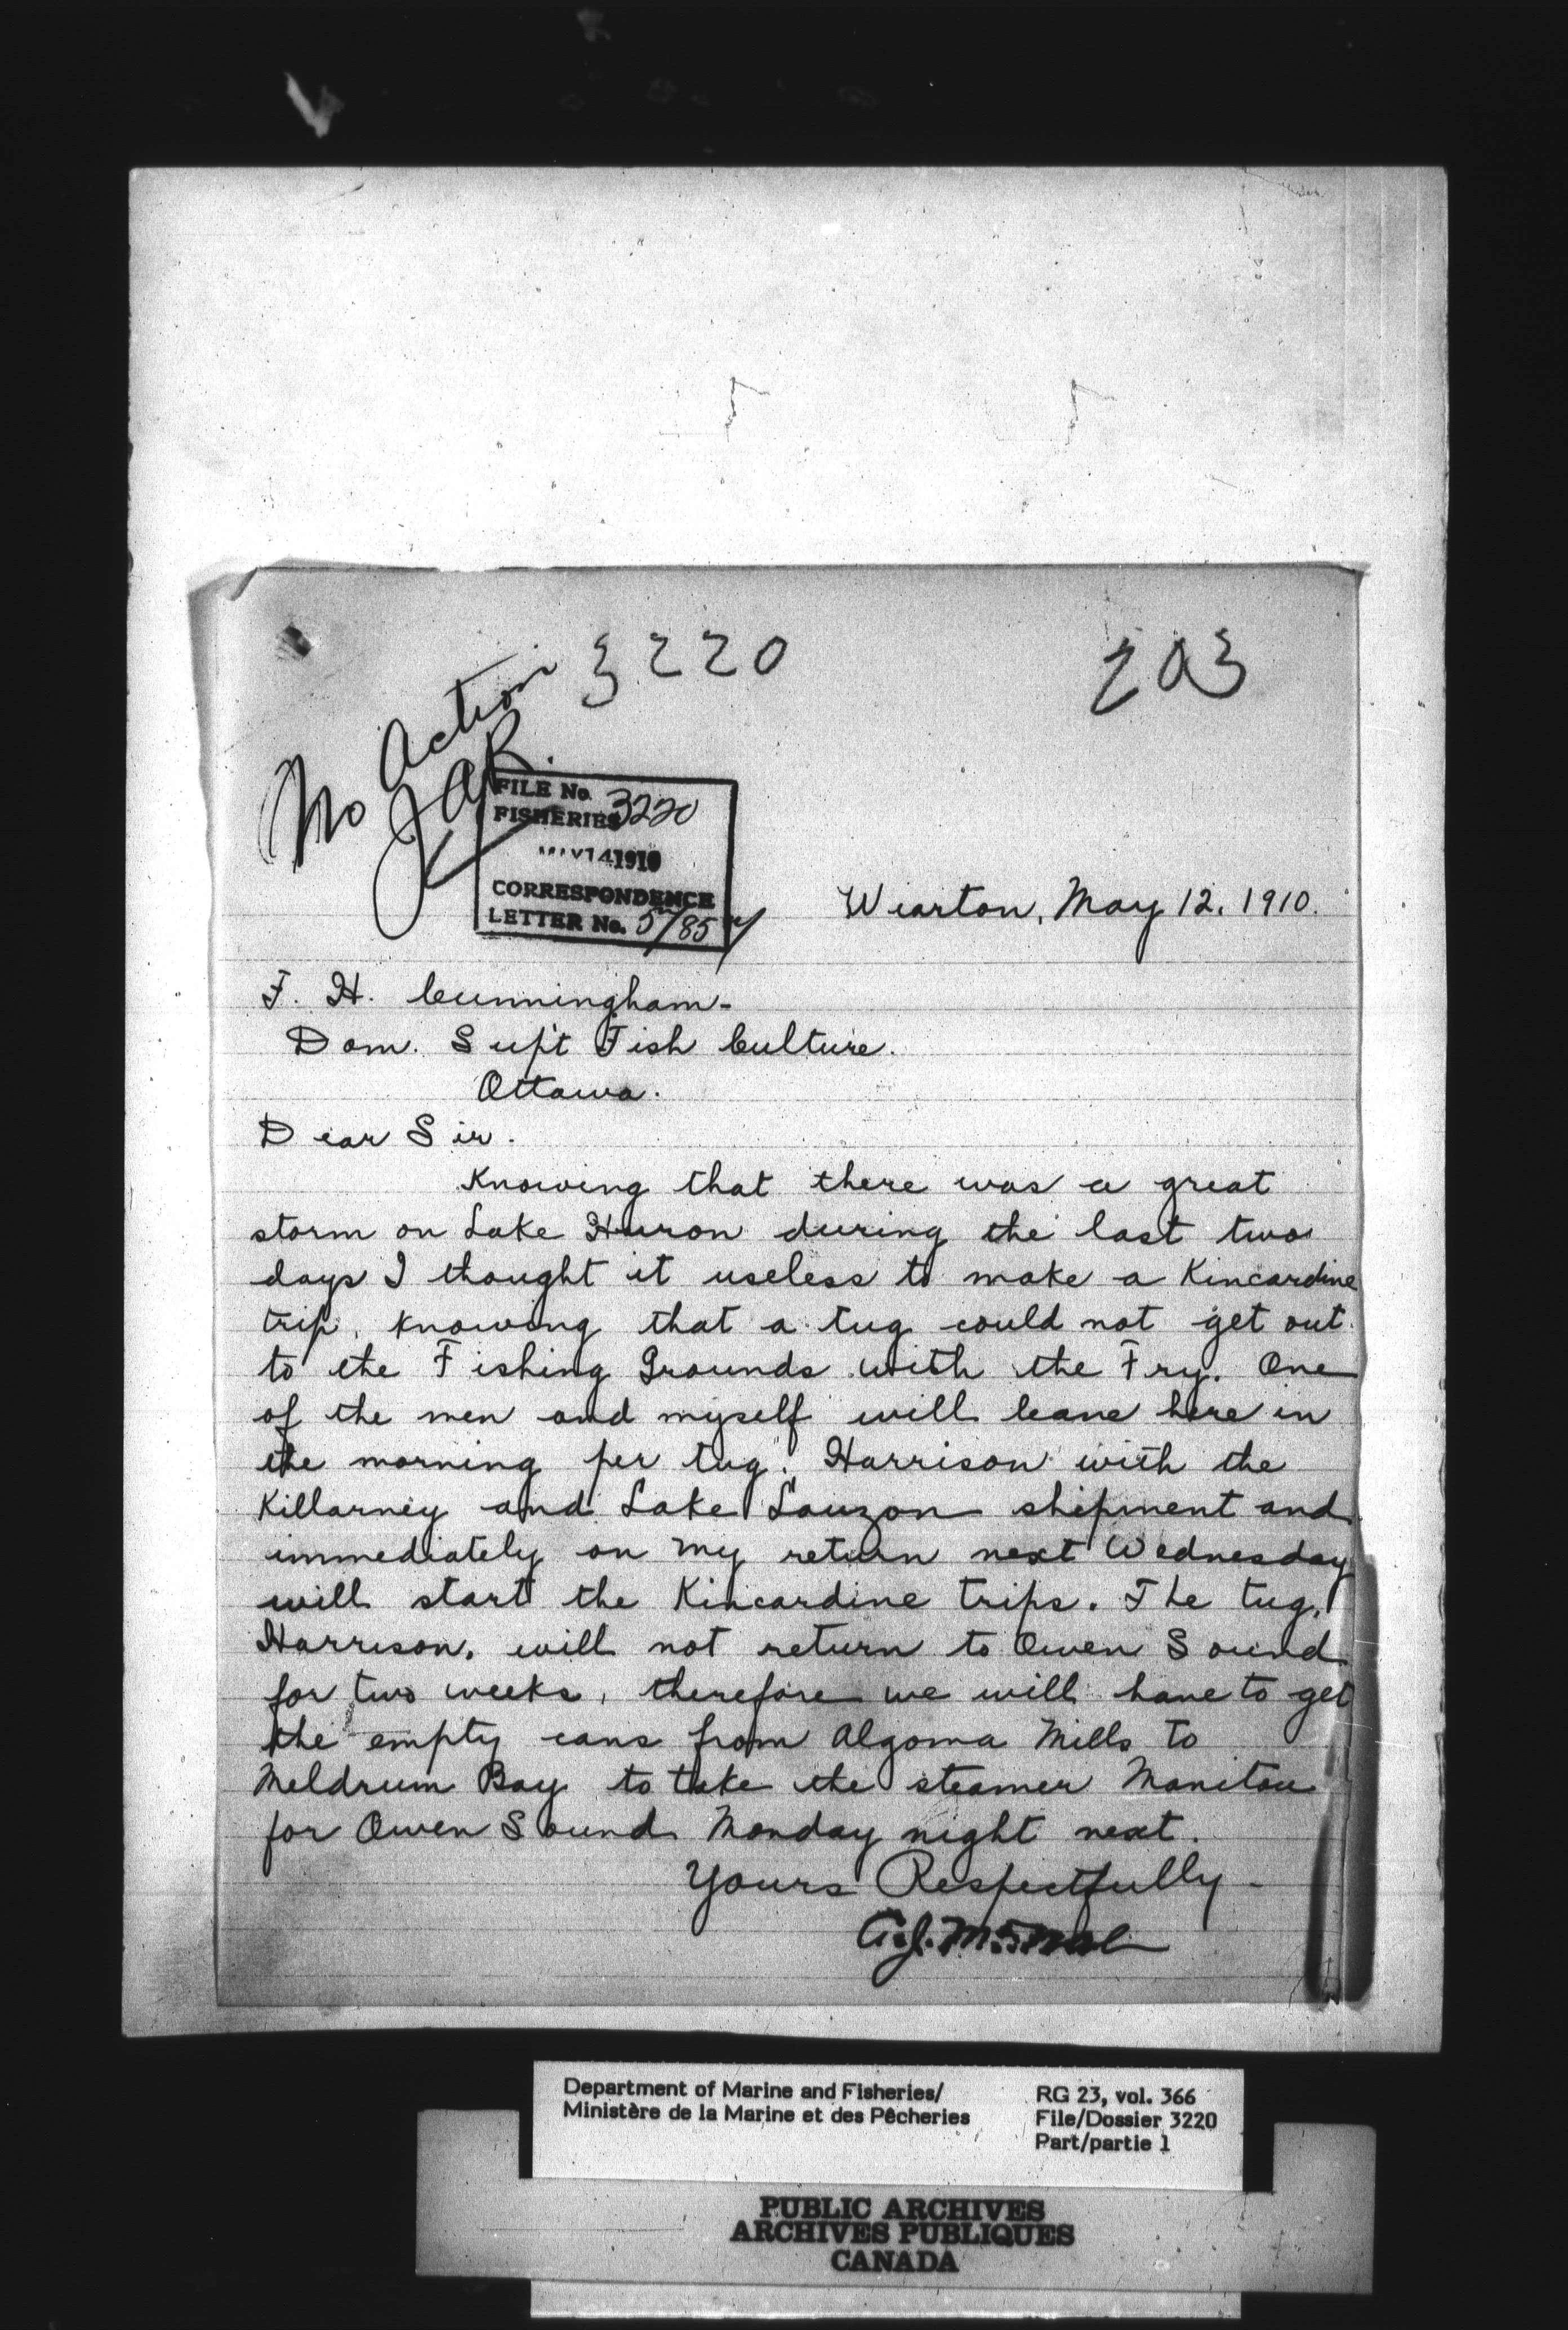 3220
203
No Action
JAR.
FILE No. 3220
FISHERIES
MAY 14 1910
CORRESPONDENCE
LETTER No. 5/85
Wiarton, May 12. 1910.
F. H. Cunningham-
Dom. Supt Fish Culture.
Ottawa.
Dear Sir.
Knowing that there was a great
storm on Lake Huron during the last two
days I thought it useless to make a Kincardine
trip, knowing that a tug could not get out
to the Fishing Grounds with the Fry. One
of the men and myself will leave here in
the morning per tug. Harrison with the
Killarney and Lake Lauzon shipment and
immediately on my return next Wednesday
will start the Kincardine trips. The tug,
Harrison, will not return to Owen Sound
for two weeks, therefore we will have to get
the empty cans from Algoma Mills to
Meldrum Bay to take the steamer Manitou
for Owen Sound Monday night next.
Yours Respectfully-
A.J.
Department of Marine and Fisheries/
Ministère de la Marine et des Pêcheries
RG 23, vol. 366
File/Dossier 3220
Part/partie 1
PUBLIC ARCHIVES
ARCHIVES PUBLIQUES
CANADA